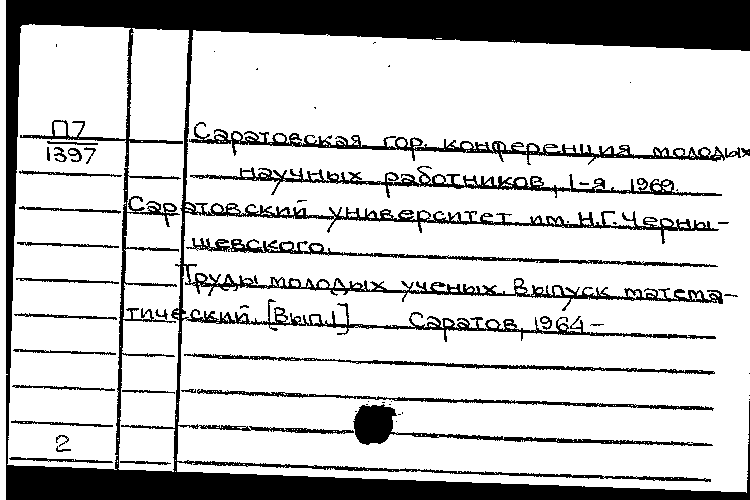 П7
1397
Саратовская гор. конференция молодых
научных работников, 1-я. 1969.
Саратовский университет им. Н.Г. Черны-
шевского.
Труды молодых ученых. Выпуск матема-
тический. [Вып.1] Саратов, 1964-
2